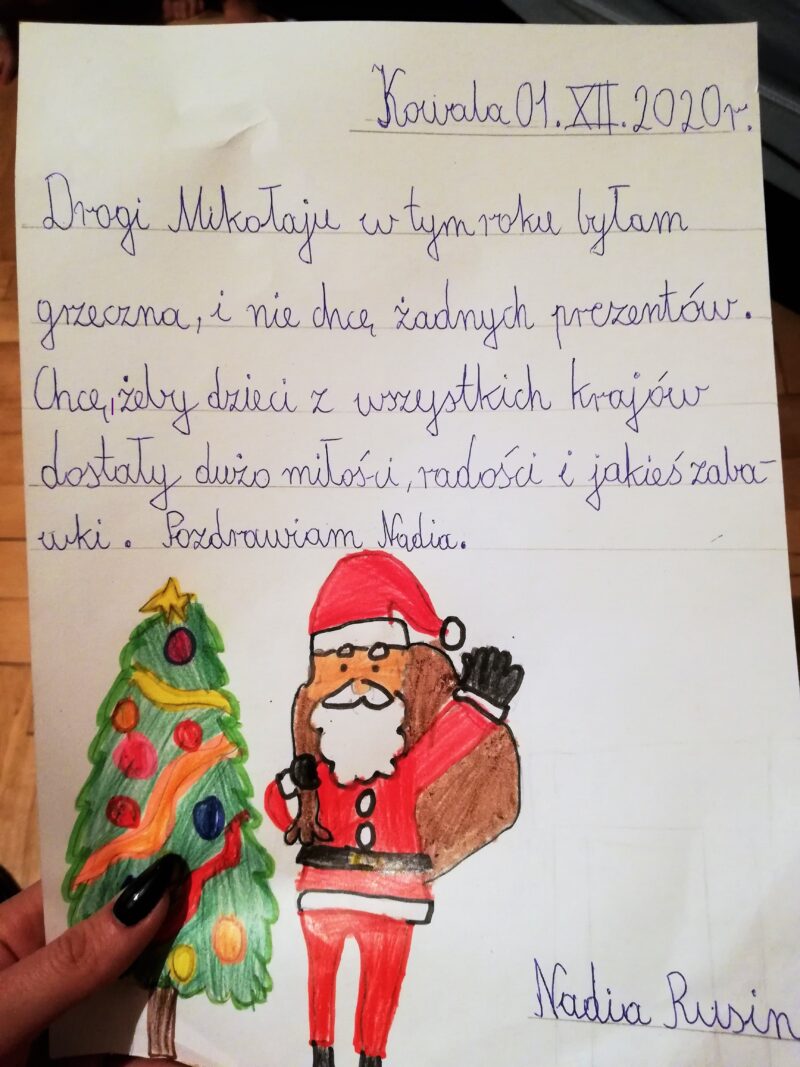 Kowala 01.XII.2020r.
Drogi Mikołaju w tym roku byłam
grzeczna, i nie chcę żadnych prezentów.
Chcę, żeby dzieci z wszystkich krajów
dostały dużo miłości, radości i jakieś zaba-
wki. Pozdrawiam Nadia.
Nadia Rusin